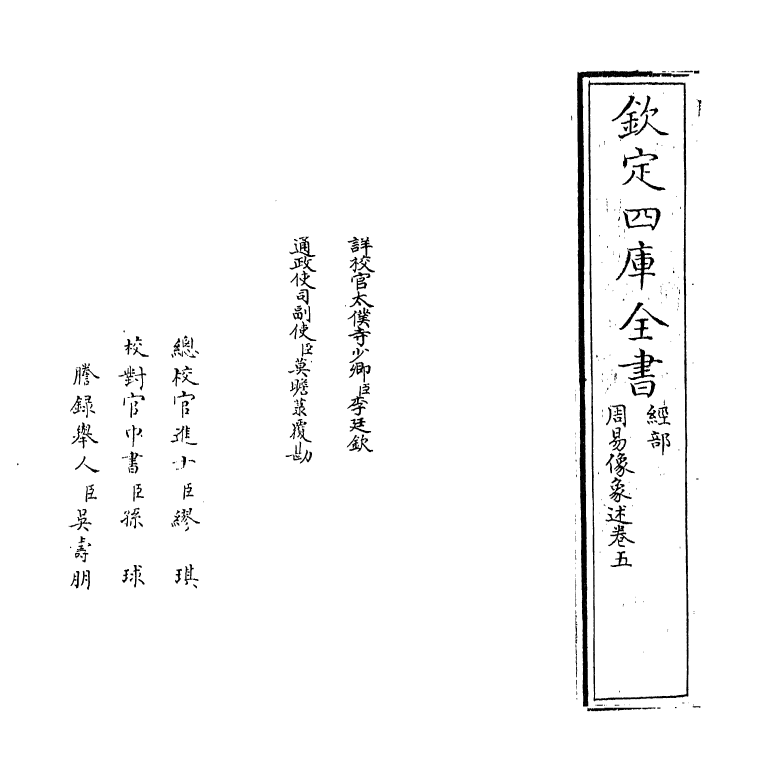 欽定四庫全書
經部
周易像象述卷五
詳校官太僕寺少卿臣李廷欽
通政使司副使臣莫瞻菉覆勘
總校官進士臣繆琪
校對官中書臣孫球
謄錄舉人臣吳壽朋